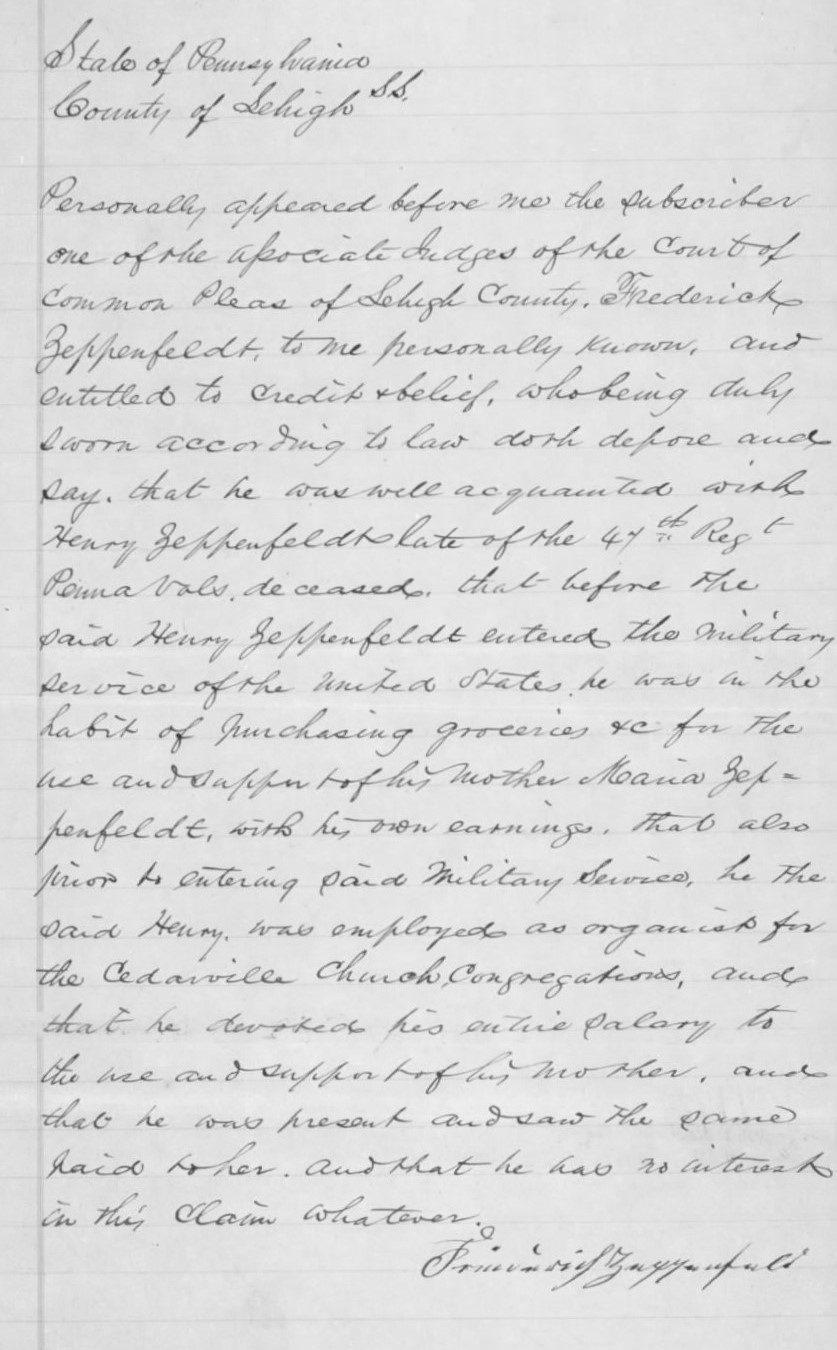 State of Pennsylvania
County of Lehigh SS.
Personally appeared before me the subscriber
one of the associate Judges of the Court of
Common Pleas of Lehigh County, Frederick
Zeppenfeldt, to me personally known, and
entitled to credit & belief, who being duly
sworn according to law doth depose and
say, that he was well acquainted with
Henry Zeppenfeldt late of the 47th Regt
Penna Vols, deceased, that before the
said Henry Zeppenfeldt entered the Military
service of the United States, he was in the
habit of purchasing groceries &c for the
use and support of his Mother Maria Zep=
penfeldt, with his own earnings. that also
prior to entering said Military Service, he the
said Henry, was employed as organist for
the Cedarville Church, Congregations, and
that he devoted his entire salary to
the use and support of his Mother, and
that he was present and saw the same
paid to her. and that he has no interest
in this Claim whatever.
Friederich Zeppenfeld